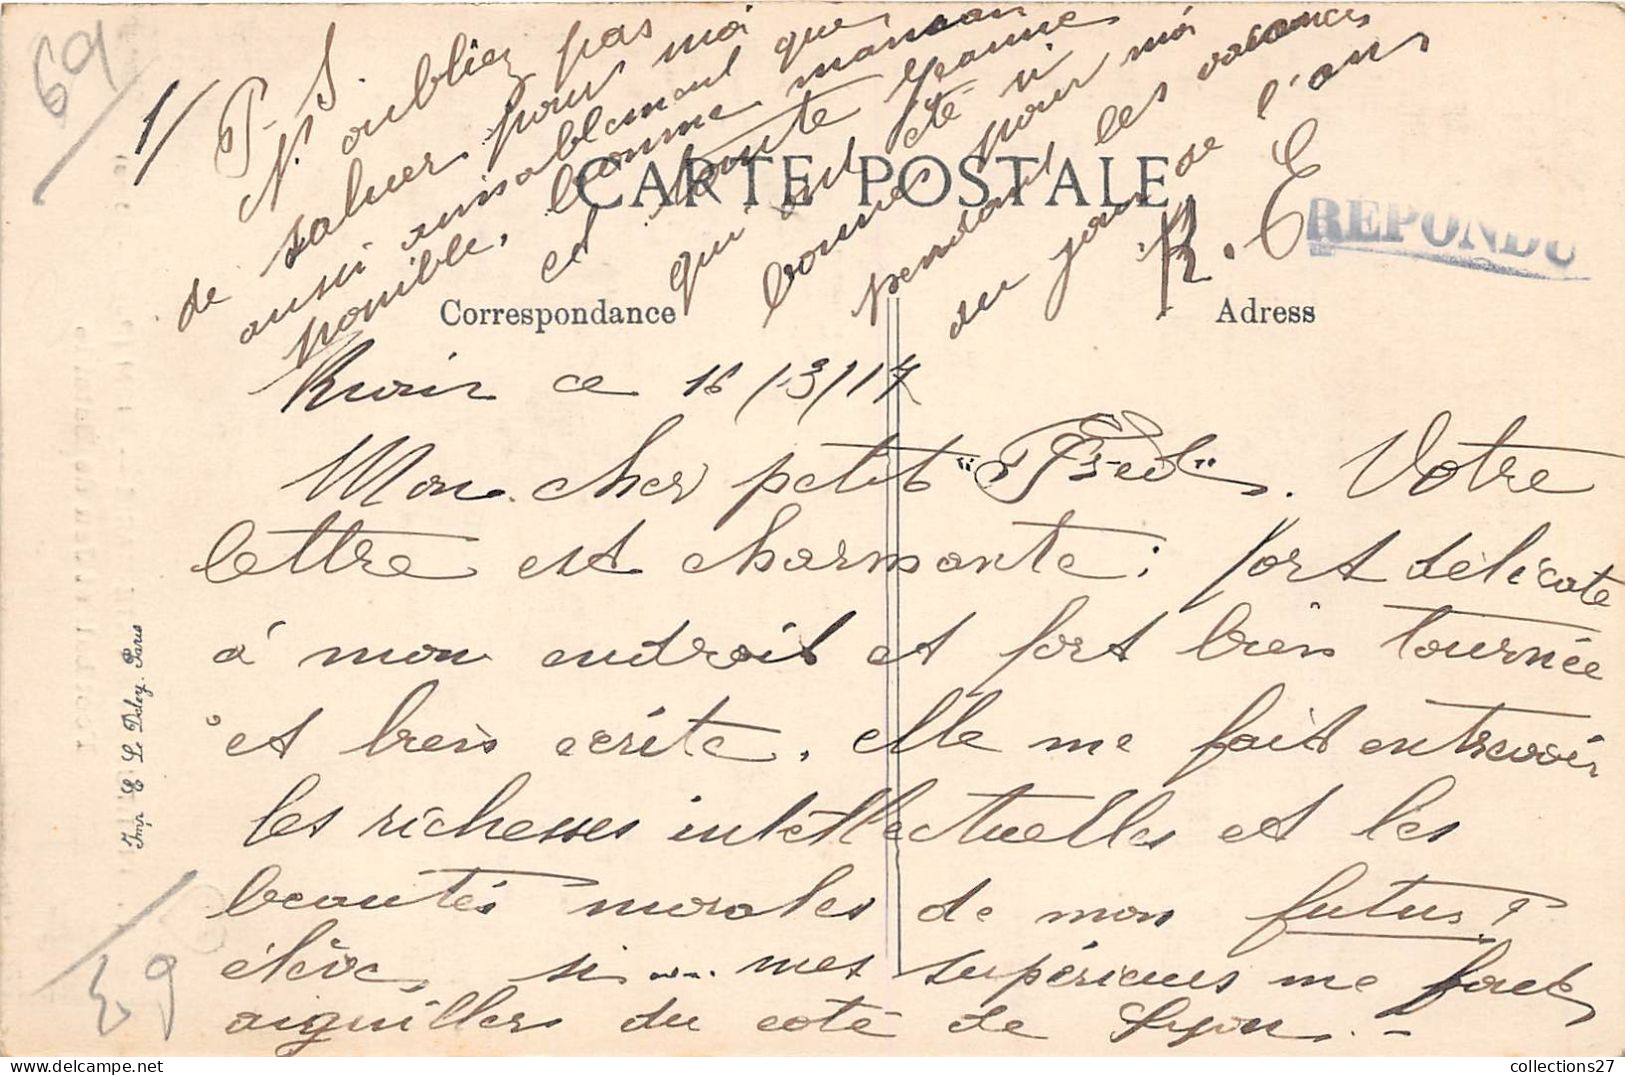 69
1/ P.S.
N'oubliez pas
de saluer pour moi
aussi aimablement que
possible, bonne maman
et tante Jeanne
qui ont été si
bonnes pour moi
pendant les vacances
du jour de l'an
R. E
REPONDU
CARTE POSTALE
Correspondance
Adress
ce 16/3/17
Mon cher petit "Fred". Votre
lettre est charmante; fort délicate
à mon endroit et fort bien tournée
et bien écrite, elle me fait entrevoir
les richesses intellectuelles et les
beautés morales de mon futur ?
élève, si... mes supérieurs me font
aiguiller du coté de Lyon. -
Imp. E. Le Deley. Paris
69
collections27